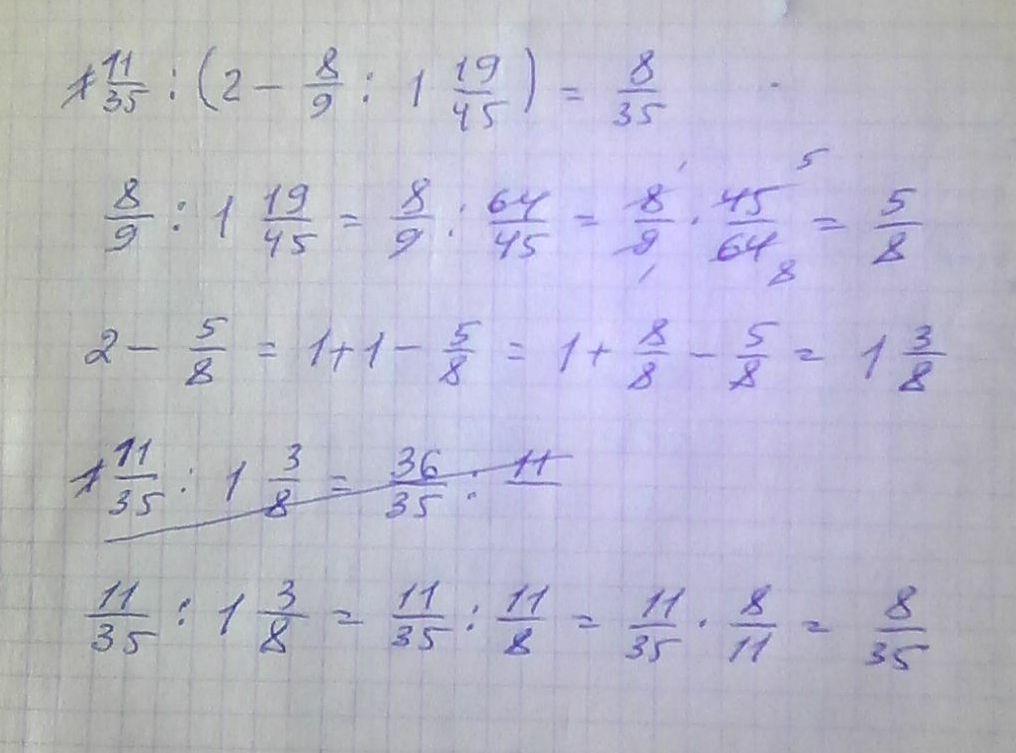 11/35 : (2 - 8/9 : 1 19/45) = 8/35
8/9 : 1 19/45 = 8/9 : 64/45 = 8/9 · 45/64 = 5/8
2 - 5/8 = 1 + 1 - 5/8 = 1 + 8/8 - 5/8 = 1 3/8
11/35 : 1 3/8 = 36/35 : 11
11/35 : 1 3/8 = 11/35 : 11/8 = 11/35 · 8/11 = 8/35